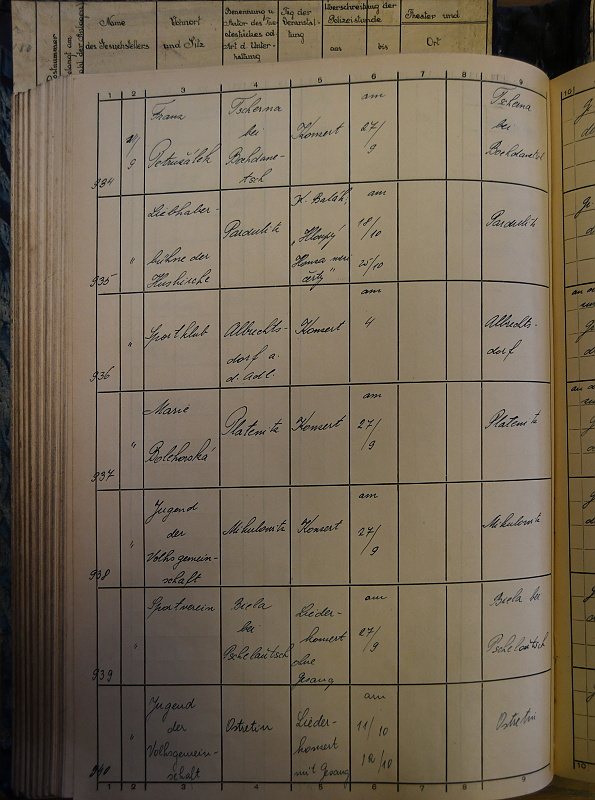 Name
des Gesuchstellers
Wohnort
und Sitz
Benennung u.
Autor des The-
aterstückes od.
Art d. Unter-
haltung
Tag der
Veranstal-
tung
Überschreitung der
Polizeistunde
aus
bis
Theater und
Ort
1 2 3 4 5 6 7 8 9
934
9
Franz
Petruzálek
Tscherna
bei
Bochdane-
tsch
Konzert
am
27/
9
Tscherna
bei
Bochdanetsch
935
"
Liebhaber-
bühne der
Huskirche
Pardubitz
K. Balák,
"Hloupý
Honza mezi
čerty"
am
18/
10
25/10
Pardubitz
936
"
Sportklub
Albrechts-
dorf a.
d. Adl.
Konzert
am
4
Albrechts-
dorf
937
"
Marie
Bolehovská
Platenitz
Konzert
am
27/
9
Platenitz
938
"
Jugend
der
Volksgemein-
schaft
Mikulowitz
Konzert
am
27/
9
Mikulowitz
939
"
Sportverein
Biela
bei
Pschelautsch
Lieder-
konzert
ohne
Gesang
am
27/
9
Biela bei
Pschelautsch
940
"
Jugend
der
Volksgemein-
schaft
Ostretin
Lieder-
konzert
mit Gesang
am
11/10
12/10
Ostretin
1 2 3 4 5 6 7 8 9
10
10